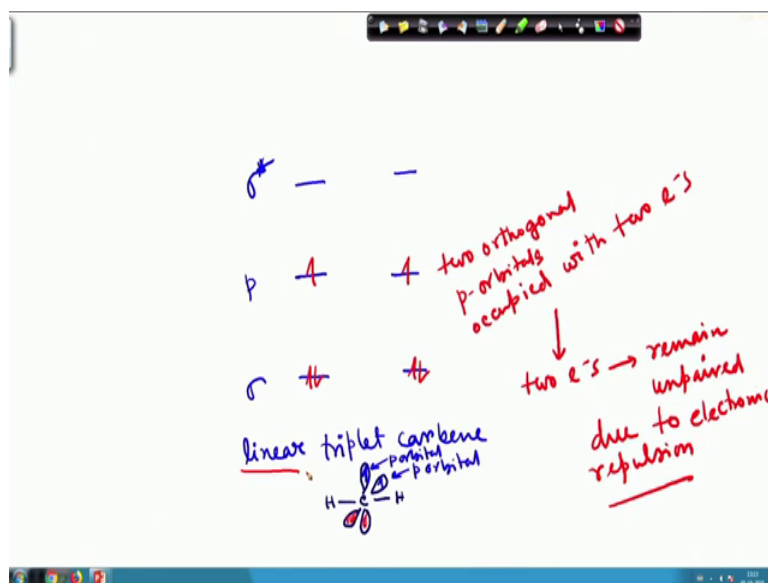 σ*
two orthogonal
p-orbitals
occupied with two e⁻s
p
two e⁻s → remain
unpaired
due to electronic
repulsion
σ
linear triplet carbene
p orbital
p orbital
H—C—H